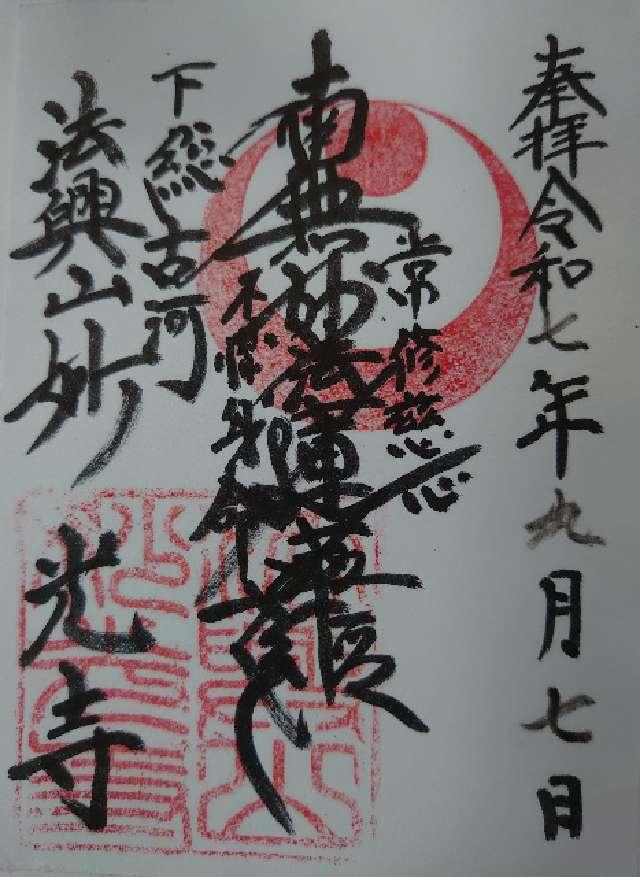 奉拝 令和七年九月七日
常修慈心
南無妙法蓮華経
不惜身命
下総古河
法興山妙光寺